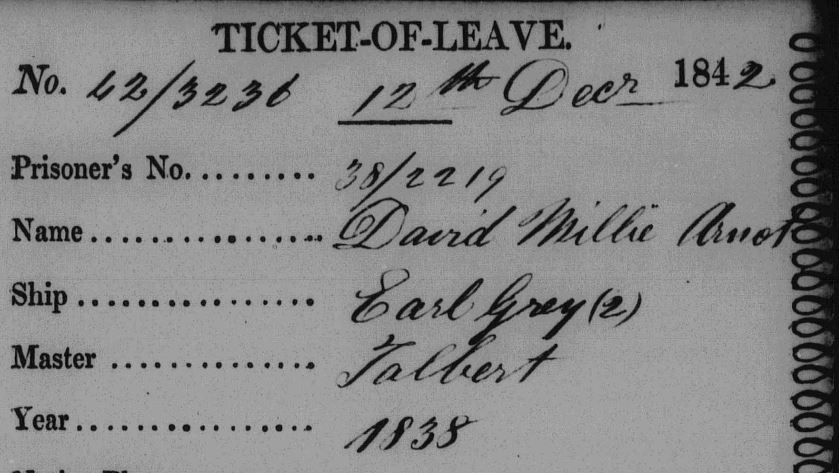 TICKET-OF-LEAVE.
No. 42/3236 12th Decr 1842
Prisoner's No. ......... 38/2219
Name .................. David Millie Arnot
Ship ................ Earl Grey (2)
Master .............. Talbert
Year ................ 1838